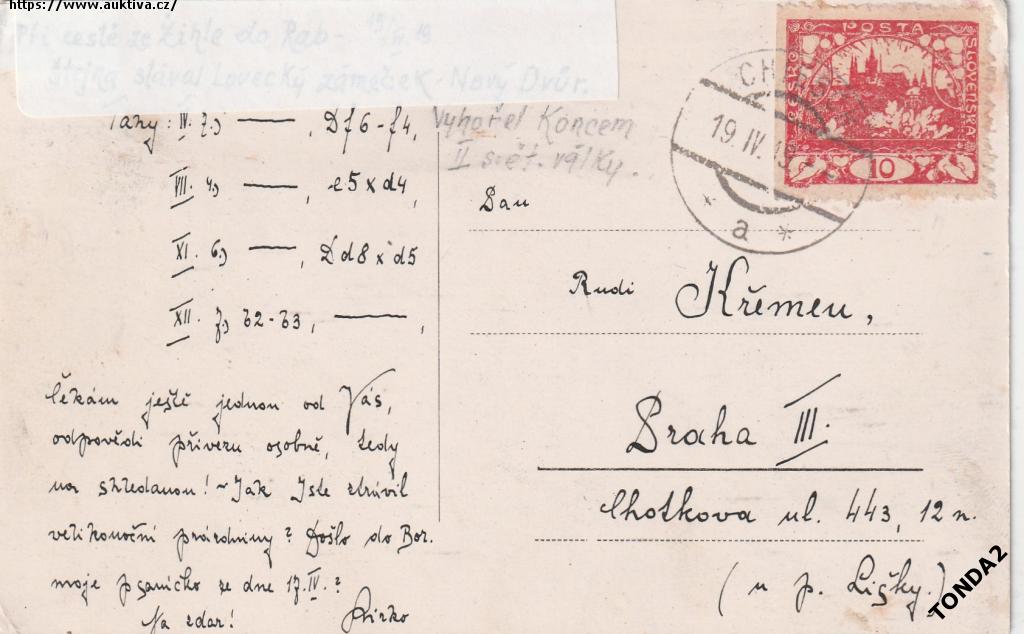 https://www.auktiva.cz/
Při cestě ze Žihle do Rab-
Stejna stával Lovecký zámeček - Nový Dvůr.
Vyhořel Koncem
II svět. války.
Tahy: IV. 7.) —— , Df6-f4,
VII. 4.) —— , e5xd4,
XI. 6.) —— , Dd8xd5
XII. 7.) b2-b3, —— ,
Čekám ještě jednou od Vás,
odpovědi přivezu osobně, tedy
na shledanou! ~ Jak jste ztrávil
velikonoční prázdniny? Došlo do Bor.
moje psaníčko ze dne 17.IV.?
Na zdar! Mirko
POSTA
ČESKO
SLOVENSKA
10
19.IV.19
* a *
Pan
Rudi Křemen,
Praha III.
Chotkova ul. 443, 12 n.
(u p. Lišky.)
TONDA2